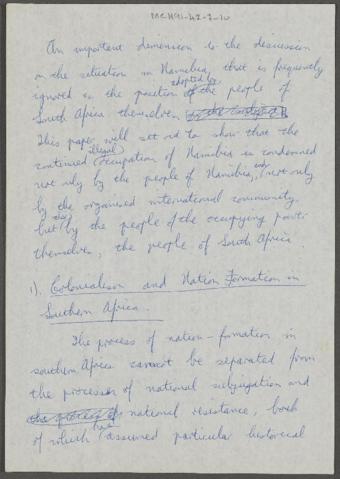 MCH91-42-2-10
An important dimension to the discussion
on the situation in Namibia, that is frequently
ignored is the position adopted by the people of
South Africa themselves
This paper will set out to show that the
continued illegal occupation of Namibia is condemned
not only by the people of Namibia, not only
by the organised international community,
but also by the people of the occupying power
themselves, the people of South Africa.
1). Colonialism and Nation Formation in
Southern Africa.
The process of nation-formation in
southern Africa cannot be separated from
the processes of national subjugation and
national resistance, both
of which have assumed particular historical